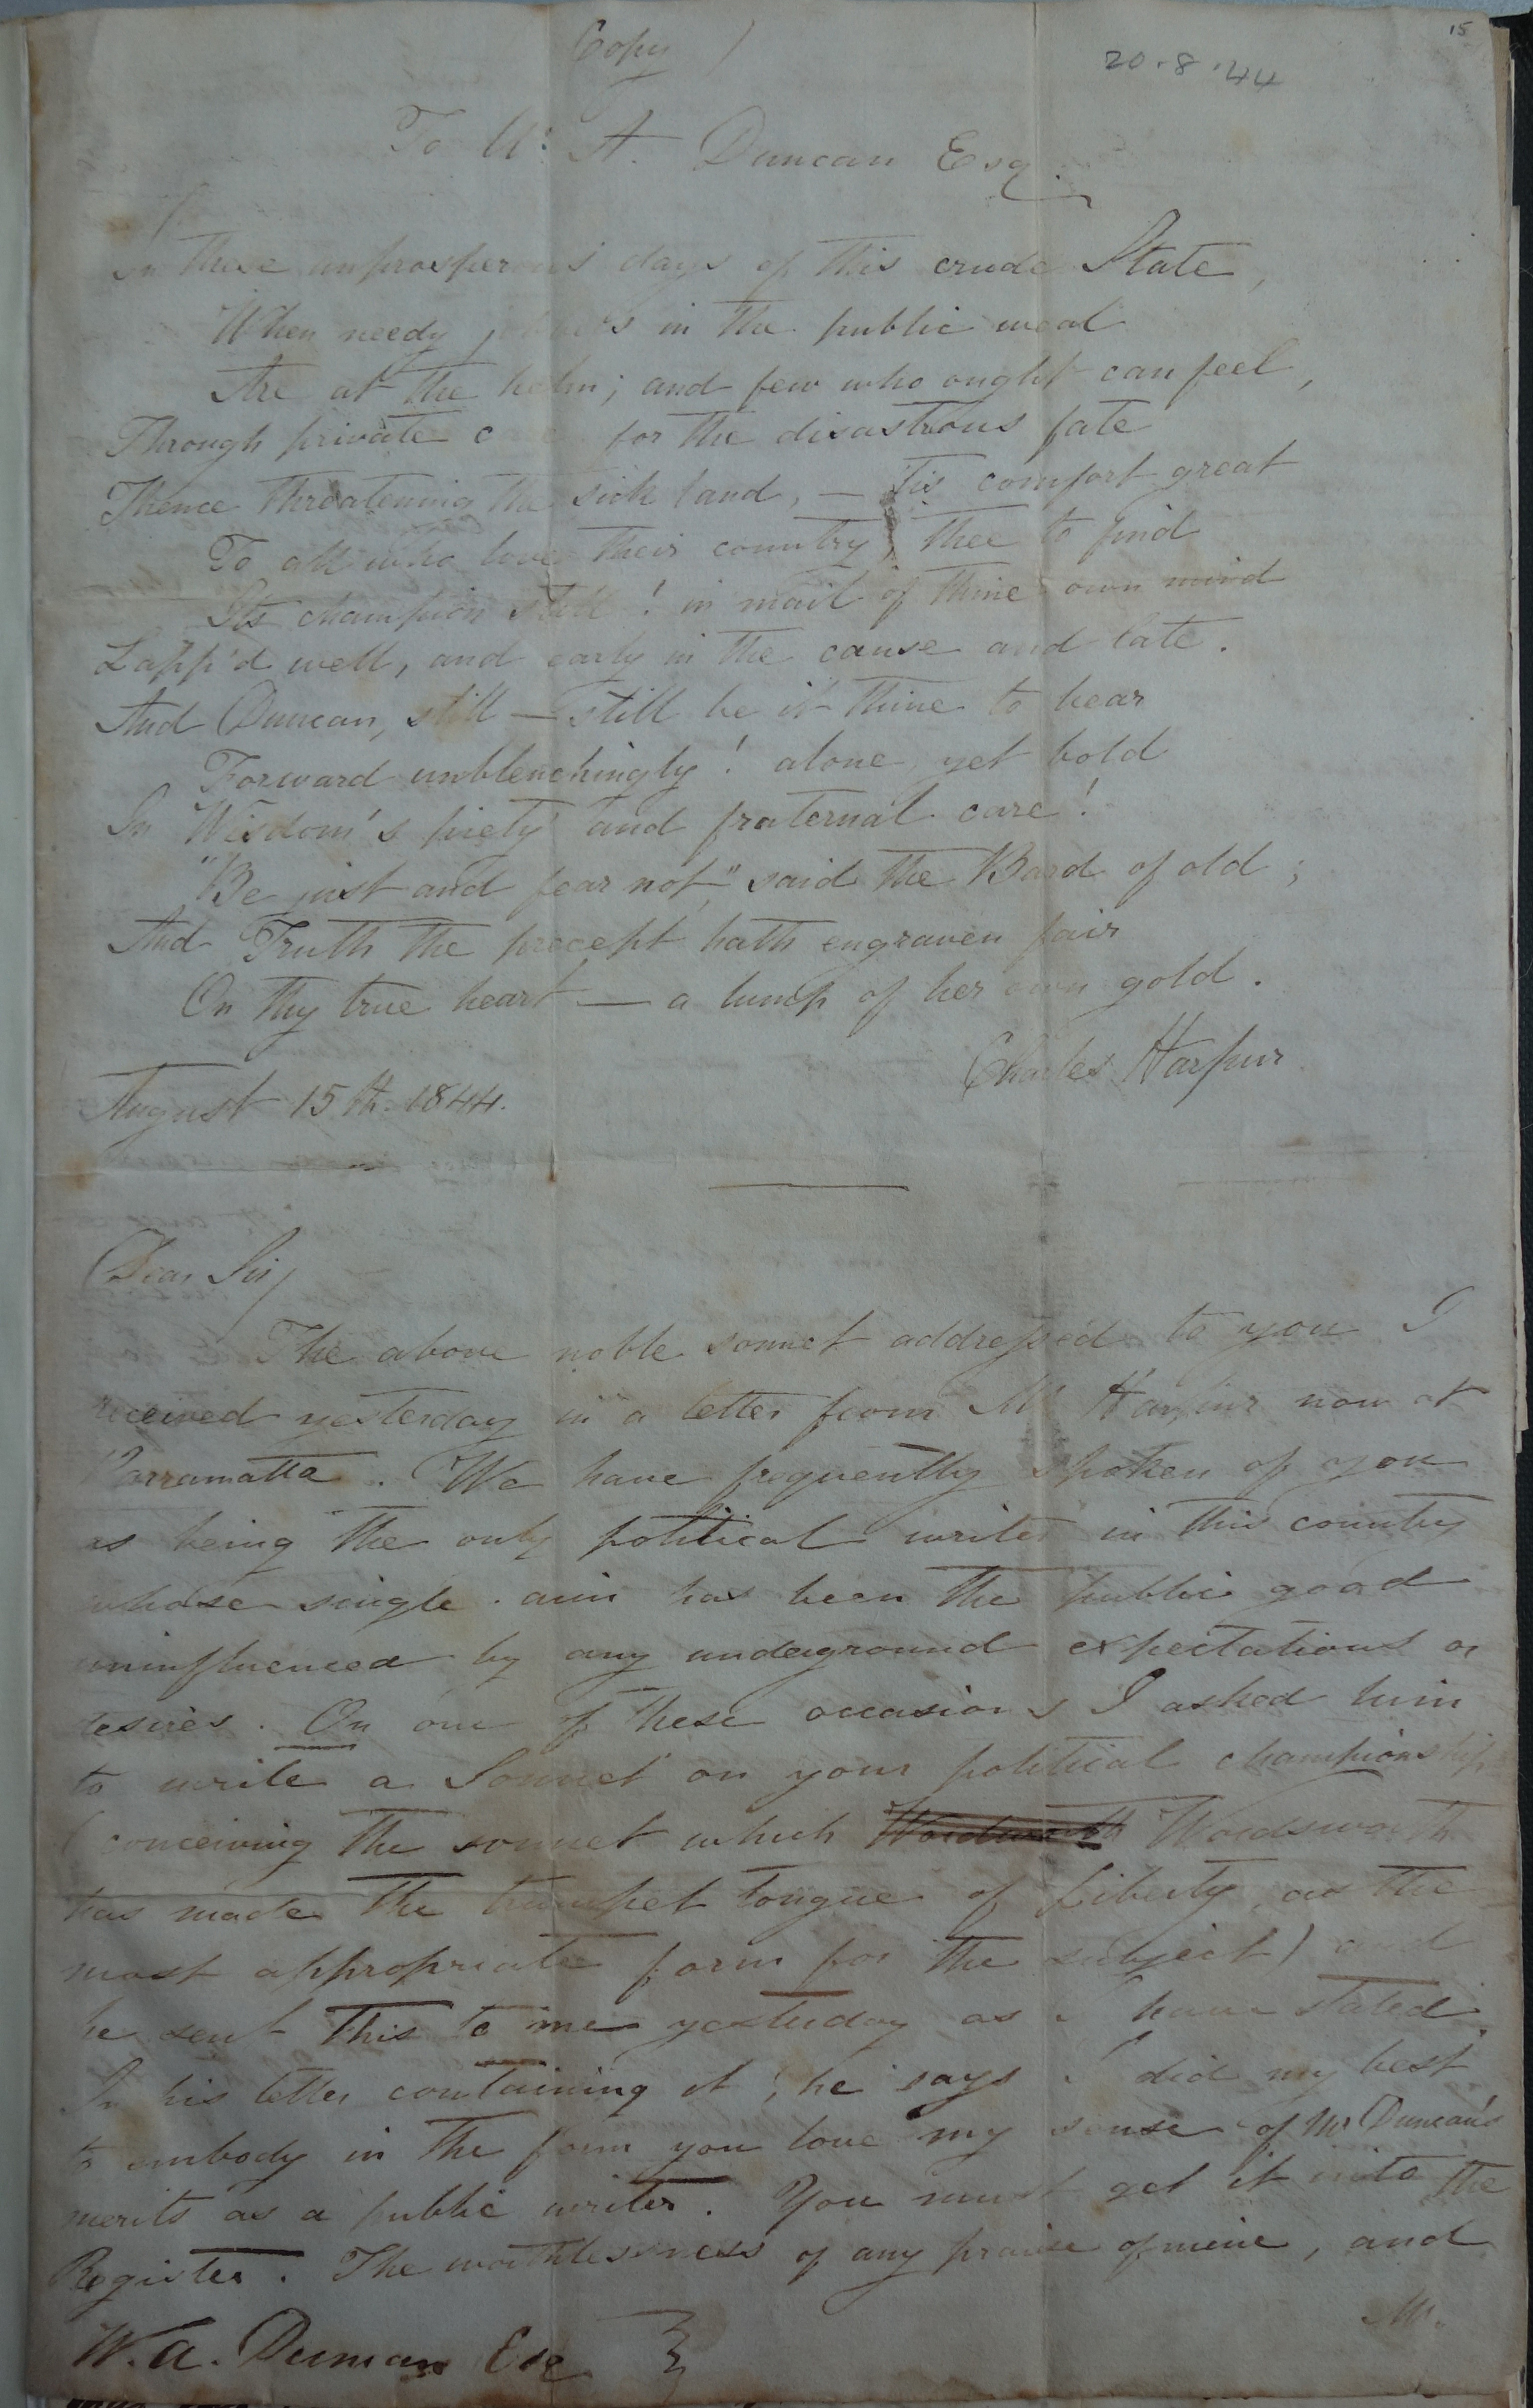 15
Copy
20.8.44
To W. A. Duncan Esq.
In these unprosperous days of this crude State,
When needy in the public weal
Are at the helm; and few who ought can feel,
Through private for the disastrous fate
Thence threatening the sick land, — Tis comfort great
To all who love their country, thee to find
Its champion still! in mail of thine own mind
Lapp'd well, and early in the cause and late.
And Duncan, still — still be it thine to bear
Forward unblenchingly! alone, yet bold
In Wisdom's piety and fraternal care!
"Be just and fear not," said the Bard of old;
And Truth the precept hath engraven fair
On thy true heart — a lump of her own gold.
Charles Harpur
August 15th. 1844.
Dear Sir,
The above noble sonnet addressed to you I
received yesterday in a letter from Mr Harpur now at
Parramatta. We have frequently spoken of you
as being the only political writer in this country
whose single aim has been the public good
uninfluenced by any underground expectations or
desires. On one of these occasions I asked him
to write a Sonnet on your political championship
(conceiving the sonnet which Wordsworth Wordsworth
has made the trumpet tongue of Liberty, as the
most appropriate form for the subject) and
he sent this to me yesterday as I have stated.
In his letter containing it, he says I did my best
to embody in the form you love my sense of Mr Duncan's
merits as a public writer. You must get it into the
Register. The worthlessness of any praise of mine, and
Mr.
W. A. Duncan Esq